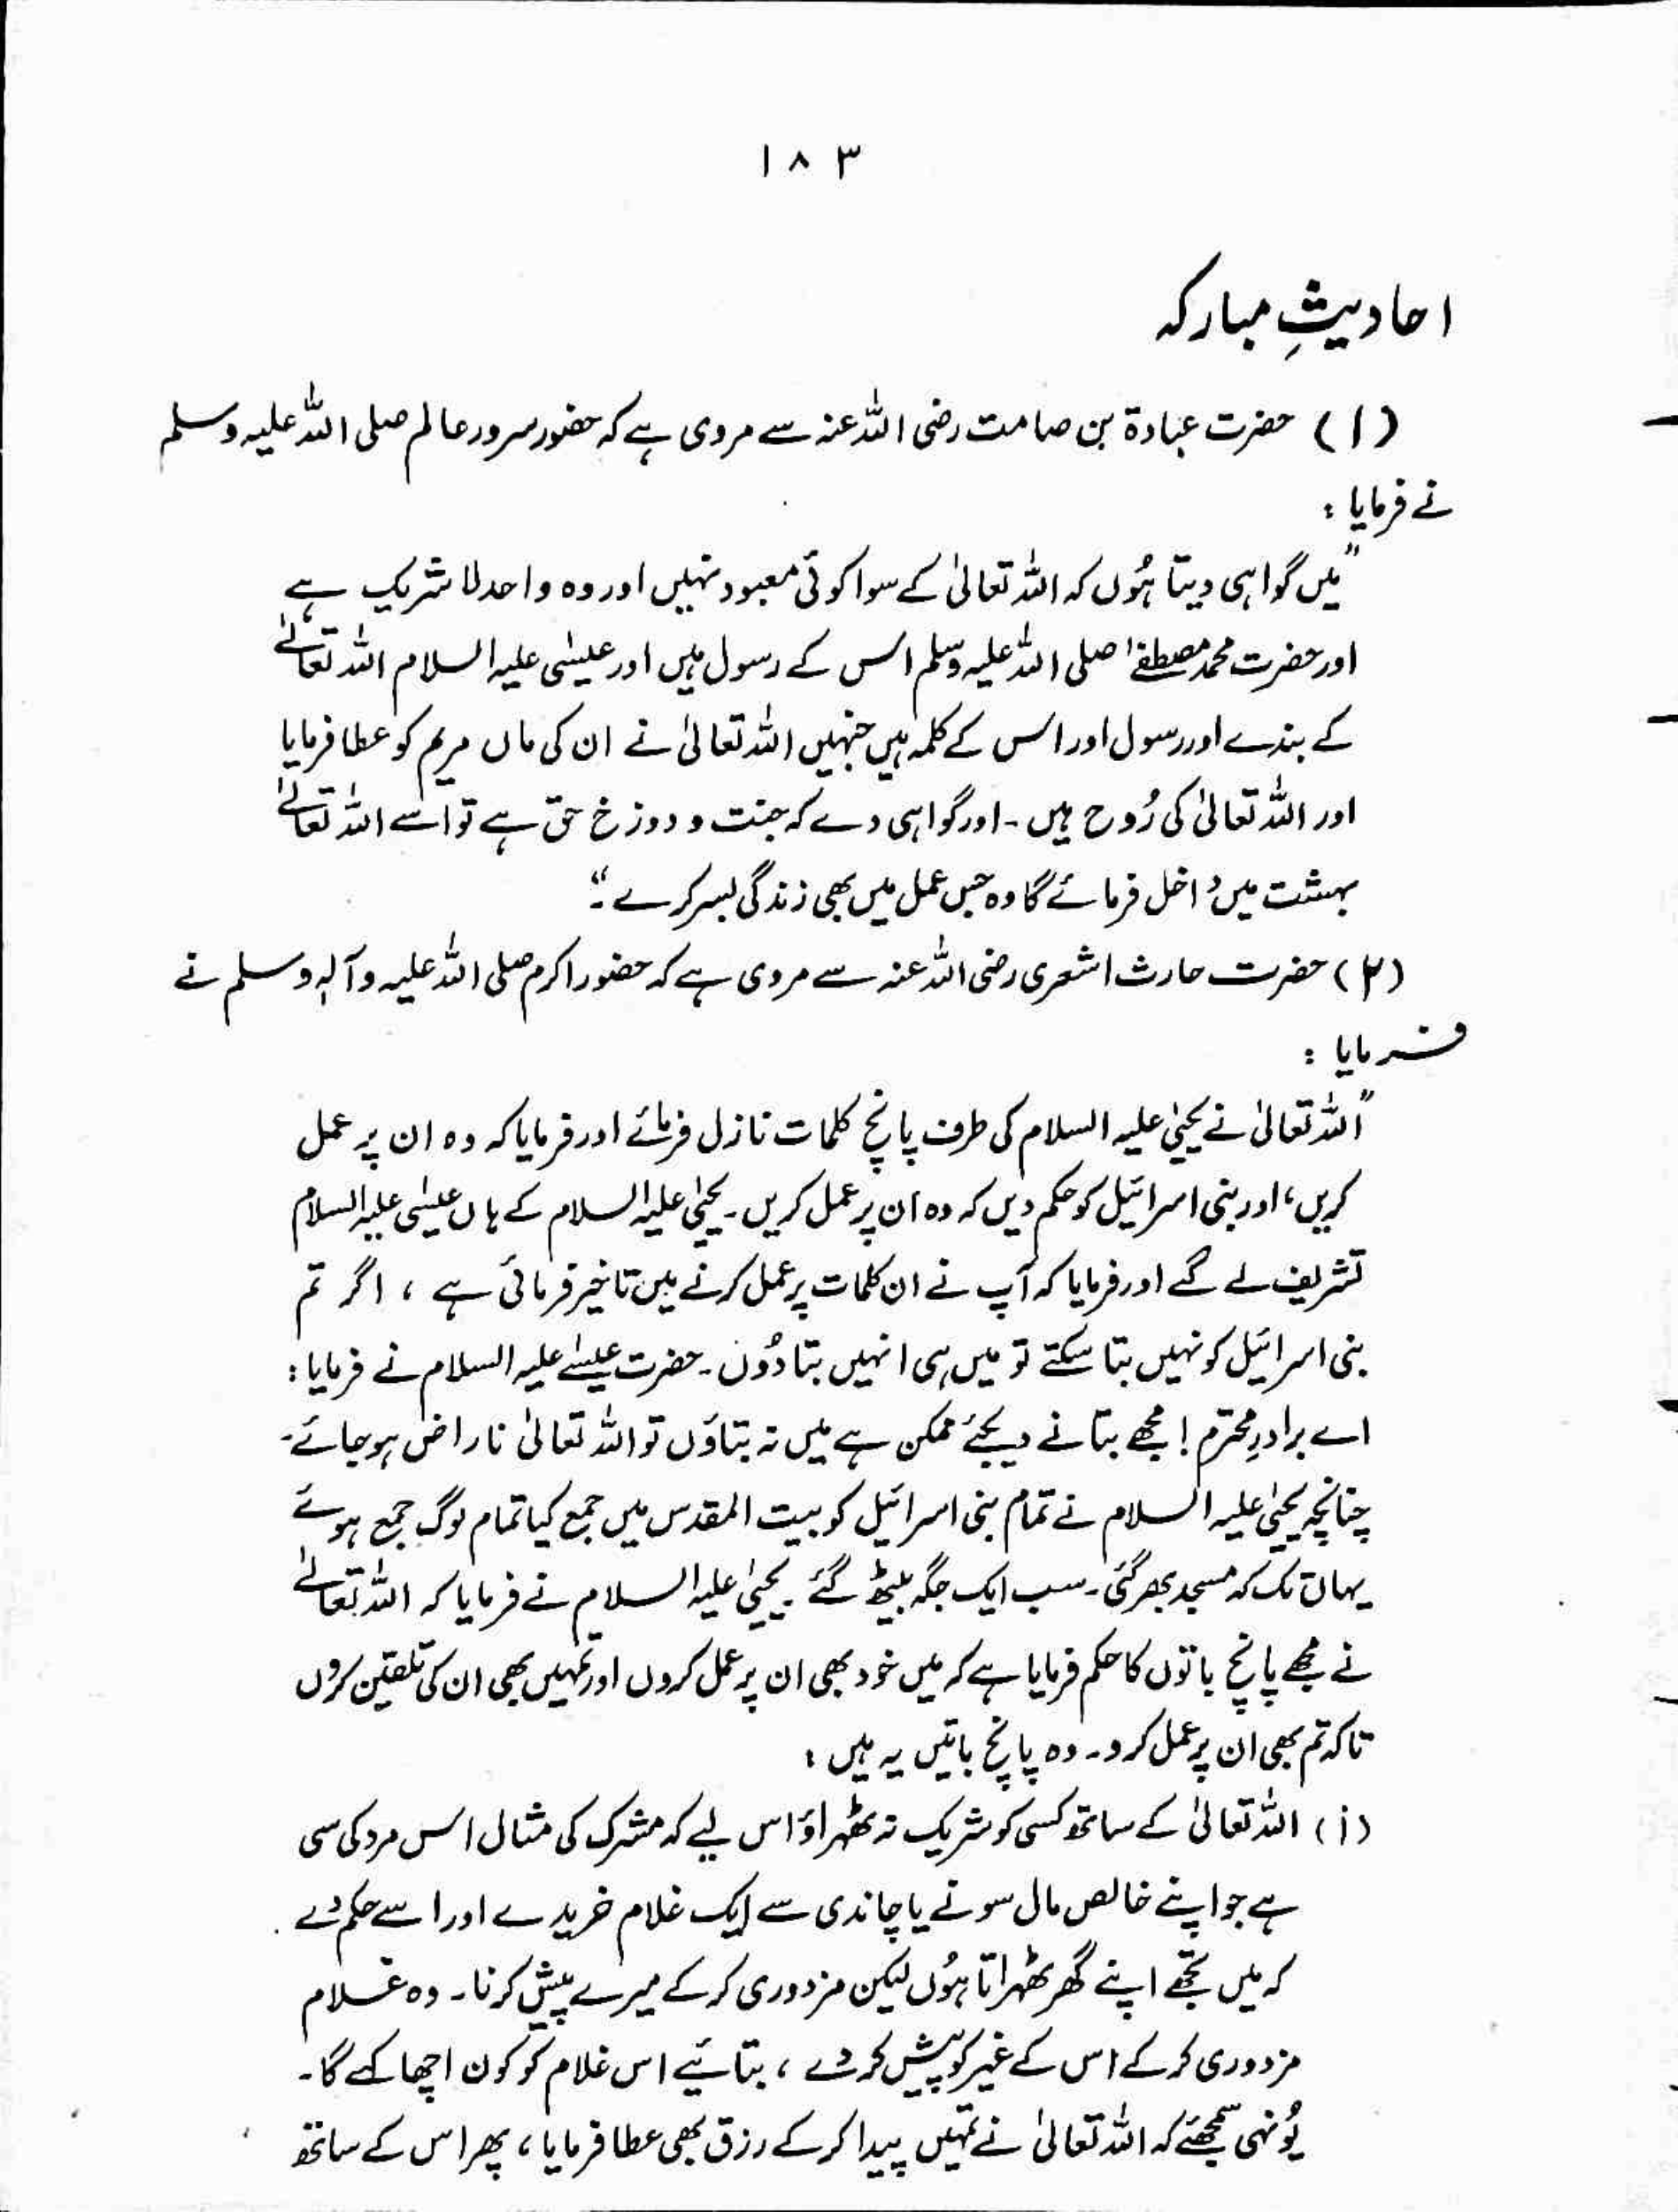 ۱۸۳
احادیثِ مبارکہ
(۱) حضرت عبادۃ بن صامت رضی اللہ عنہ سے مروی ہے کہ حضور سرور عالم صلی اللہ علیہ وسلم
نے فرمایا :
"میں گواہی دیتا ہُوں کہ اللہ تعالیٰ کے سوا کوئی معبود نہیں اور وہ واحد لا شریک ہے
اور حضرت محمد مصطفےٰ صلی اللہ علیہ وسلم اس کے رسول ہیں اور عیسٰی علیہ السلام اللہ تعالےٰ
کے بندے اور رسول اور اس کے کلمہ ہیں جنہیں اللہ تعالیٰ نے ان کی ماں مریم کو عطا فرمایا
اور اللہ تعالیٰ کی رُوح ہیں۔ اور گواہی دے کہ جنت و دوزخ حق ہے تو اسے اللہ تعالےٰ
بہشت میں داخل فرمائے گا وہ جس عمل میں بھی زندگی بسر کرے۔"
(۲) حضرت حارث اشعری رضی اللہ عنہ سے مروی ہے کہ حضور اکرم صلی اللہ علیہ وآلہ وسلم نے
فرمایا :
"اللہ تعالیٰ نے یحییٰ علیہ السلام کی طرف پانچ کلمات نازل فرمائے اور فرمایا کہ وہ ان پر عمل
کریں، اور بنی اسرائیل کو حکم دیں کہ وہ ان پر عمل کریں۔ یحییٰ علیہ السلام کے ہاں عیسٰی علیہ السلام
تشریف لے گے اور فرمایا کہ آپ نے ان کلمات پر عمل کرنے میں تاخیر فرمائی ہے ، اگر تم
بنی اسرائیل کو نہیں بتا سکتے تو میں ہی انہیں بتا دُوں۔ حضرت عیسےٰ علیہ السلام نے فرمایا :
اے برادرِ محترم ! مجھے بتانے دیجئے ممکن ہے میں نہ بتاؤں تو اللہ تعالیٰ ناراض ہو جائے۔
چنانچہ یحییٰ علیہ السلام نے تمام بنی اسرائیل کو بیت المقدس میں جمع کیا تمام لوگ جمع ہوئے
یہاں تک کہ مسجد بھر گئی۔ سب ایک جگہ بیٹھ گئے۔ یحییٰ علیہ السلام نے فرمایا کہ اللہ تعالےٰ
نے مجھے پانچ باتوں کا حکم فرمایا ہے کہ میں خود بھی ان پر عمل کروں اور تمہیں بھی ان کی تلقین کروں
تاکہ تم بھی ان پر عمل کرو۔ وہ پانچ باتیں یہ ہیں :
(i) اللہ تعالیٰ کے ساتھ کسی کو شریک نہ ٹھہراؤ اس لیے کہ مشرک کی مثال اس مرد کی سی
ہے جو اپنے خالص مال سونے یا چاندی سے ایک غلام خریدے اور اسے حکم دے
کہ میں تجھے اپنے گھر ٹھہراتا ہُوں لیکن مزدوری کر کے میرے پیش کرنا۔ وہ غلام
مزدوری کر کے اس کے غیر کو پیش کر دے ، بتائیے اس غلام کو کون اچھا کہے گا۔
یُونہی سمجھئے کہ اللہ تعالیٰ نے تمہیں پیدا کر کے رزق بھی عطا فرمایا ، پھر اس کے ساتھ